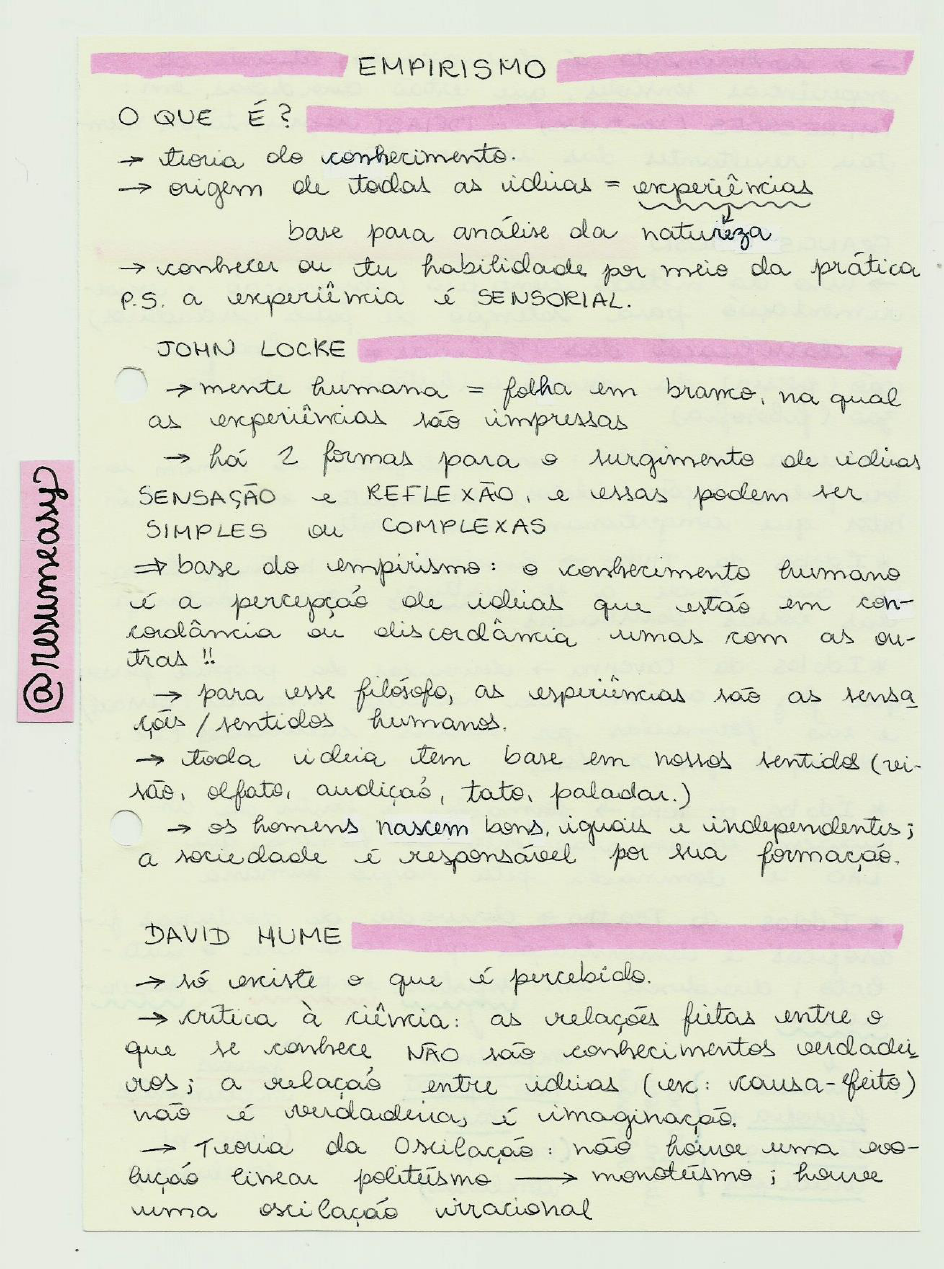 EMPIRISMO
O QUE É?
→ teoria do conhecimento.
→ origem de todas as ideias = experiências
base para análise da natureza
→ conhecer ou ter habilidade por meio da prática
P.S. a experiência é SENSORIAL.
JOHN LOCKE
→ mente humana = folha em branco, na qual
as experiências são impressas
→ há 2 formas para o surgimento de ideias
SENSAÇÃO e REFLEXÃO, e essas podem ser
SIMPLES ou COMPLEXAS
⇒ base do empirismo: o conhecimento humano
é a percepção de ideias que estão em con-
cordância ou discordância umas com as ou-
tras!!
→ para esse filósofo, as experiências são as sensa
ções/sentidos humanos.
→ toda ideia tem base em nossos sentidos (vi-
são, olfato, audição, tato, paladar.)
→ os homens nascem bons, iguais e independentes;
a sociedade é responsável por sua formação.
@resumeasy
DAVID HUME
→ só existe o que é percebido.
→ crítica à ciência: as relações feitas entre o
que se conhece NÃO são conhecimentos verdadei
ros; a relação entre ideias (ex: causa-efeito)
não é verdadeira, é imaginação.
→ Teoria da Oscilação: não houve uma evo-
lução linear politeísmo → monoteísmo; houve
uma oscilação irracional